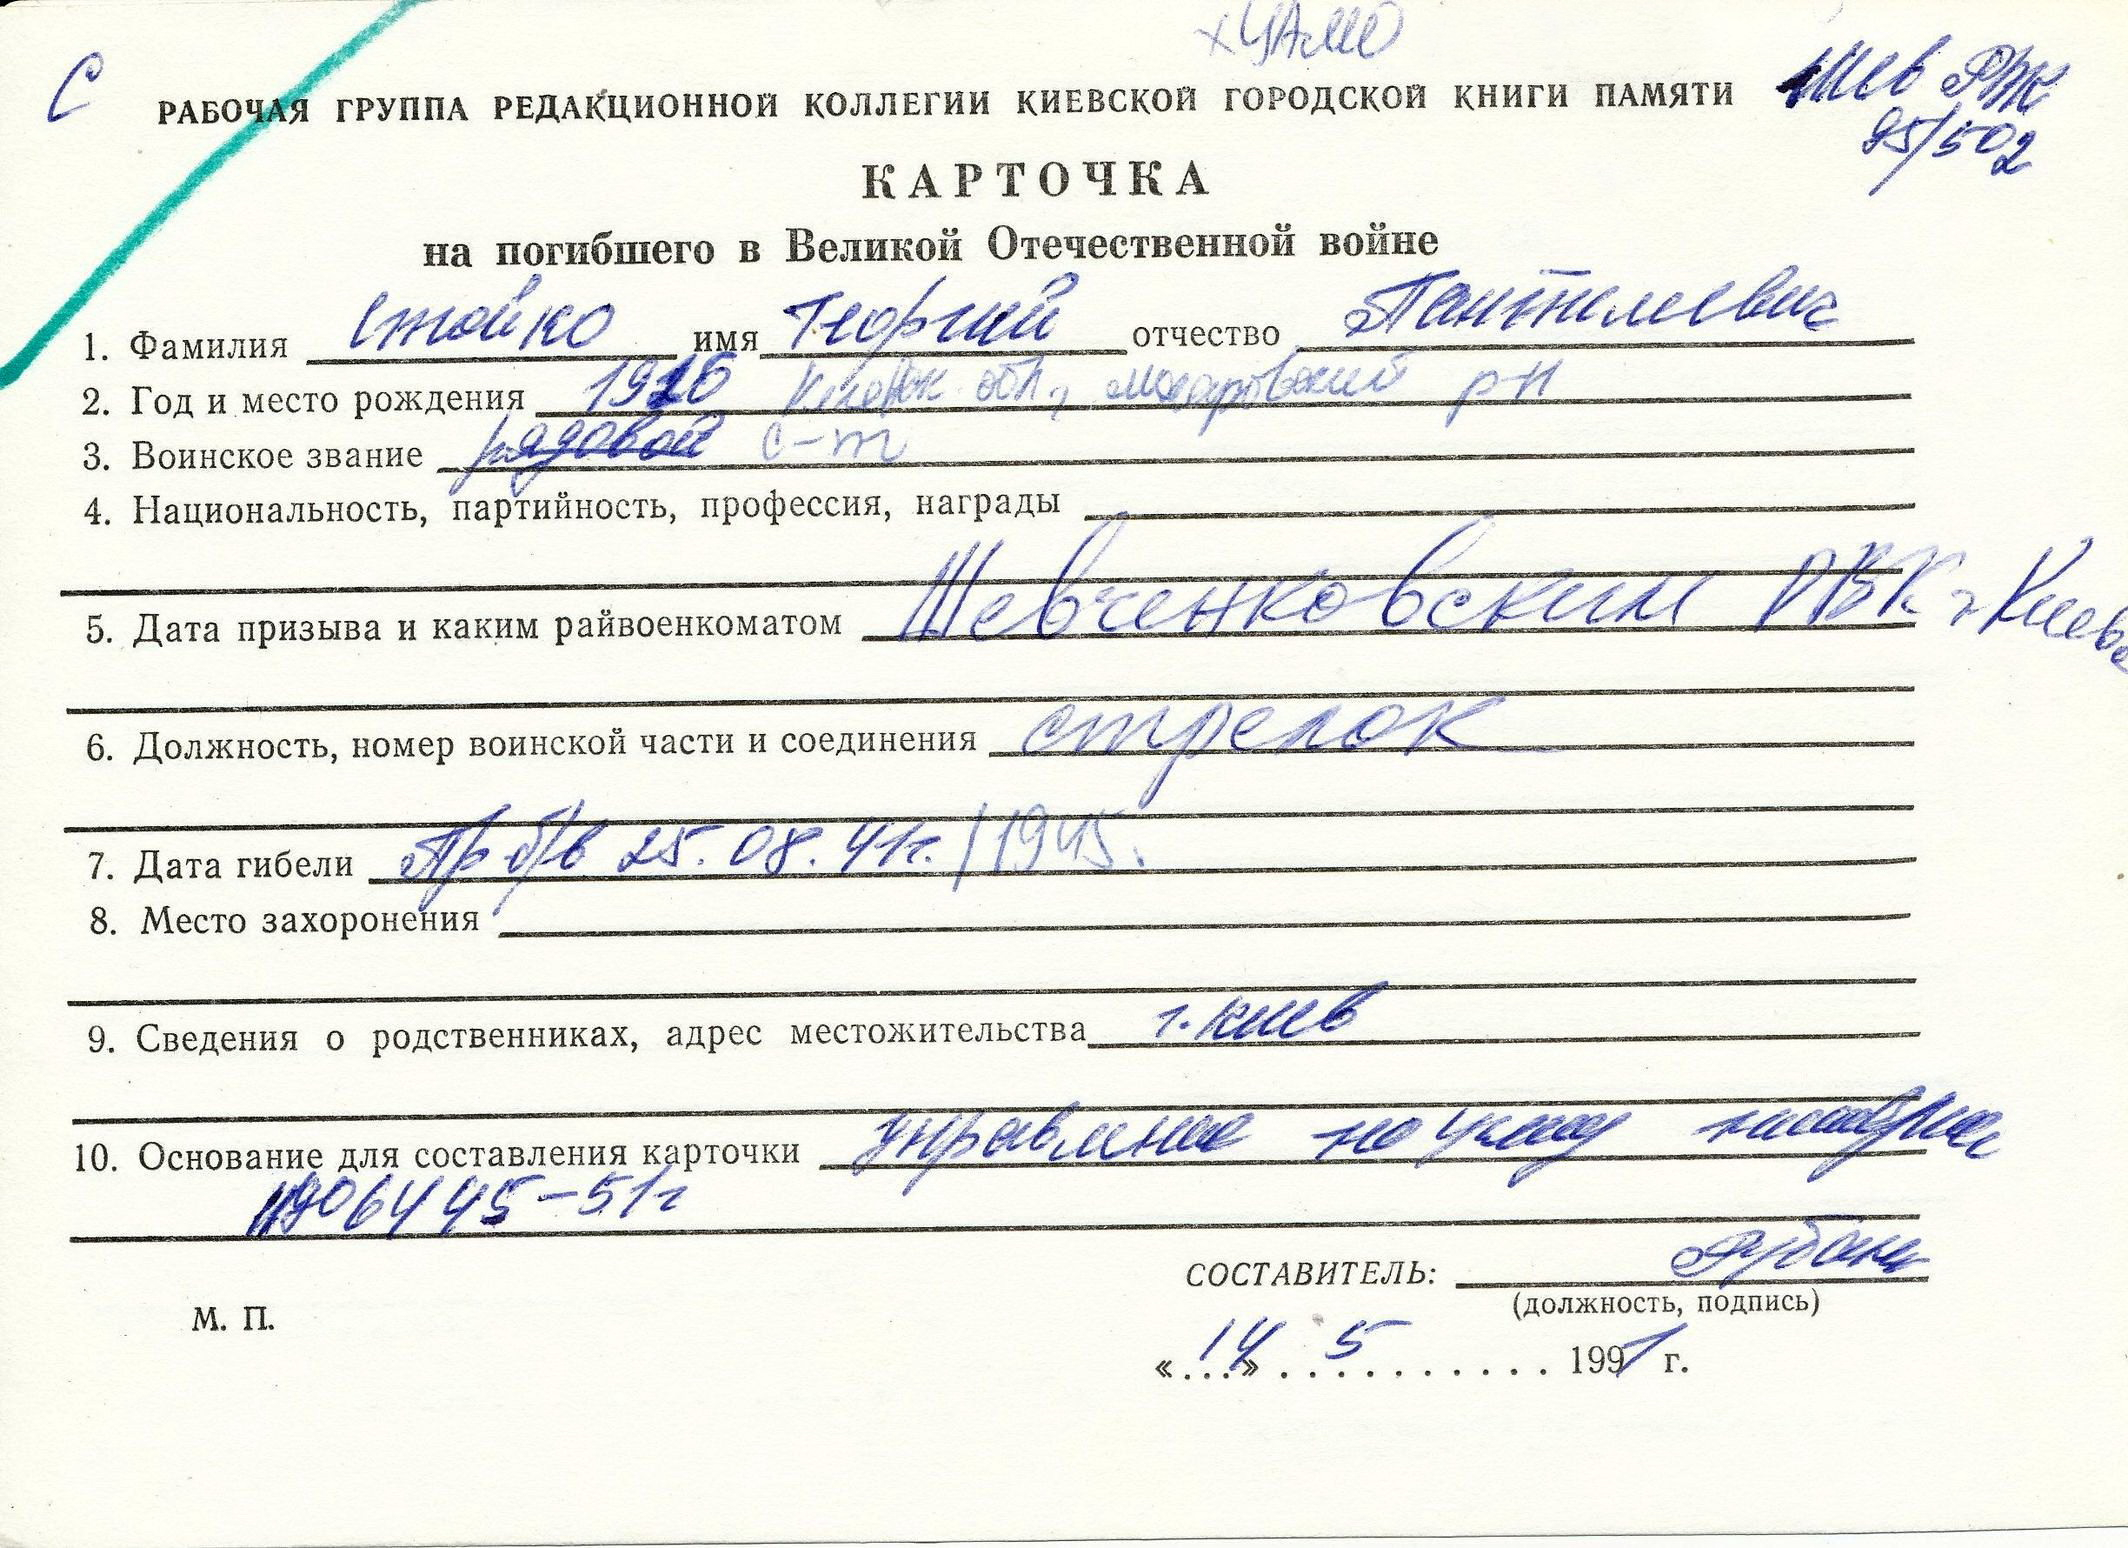 х ЦАМО
С
РАБОЧАЯ ГРУППА РЕДАКЦИОННОЙ КОЛЛЕГИИ КИЕВСКОЙ ГОРОДСКОЙ КНИГИ ПАМЯТИ
Шев РЖ
95/502
КАРТОЧКА
на погибшего в Великой Отечественной войне
1. Фамилия Стойко имя Георгий отчество Пантилеевич
2. Год и место рождения 1926 Киевск. обл., Макаровский р-н
3. Воинское звание рядовой с-т
4. Национальность, партийность, профессия, награды
5. Дата призыва и каким райвоенкоматом Шевченковским РВК г. Киева
6. Должность, номер воинской части и соединения стрелок
7. Дата гибели Пр б/в 25.08.41г. /1945.
8. Место захоронения
9. Сведения о родственниках, адрес местожительства г. Киев
10. Основание для составления карточки управление по учету
06445-51г
СОСТАВИТЕЛЬ:
(должность, подпись)
М. П.
«...14» 5 .......... 1991 г.